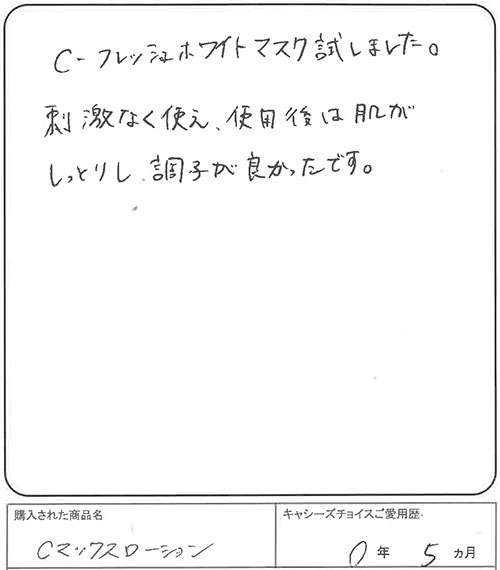 C-フレッシュホワイトマスク試しました。
刺激なく使え、使用後は肌が
しっとりし、調子が良かったです。
購入された商品名
キャシーズチョイスご愛用歴
Cマックスローション
0年 5ヵ月